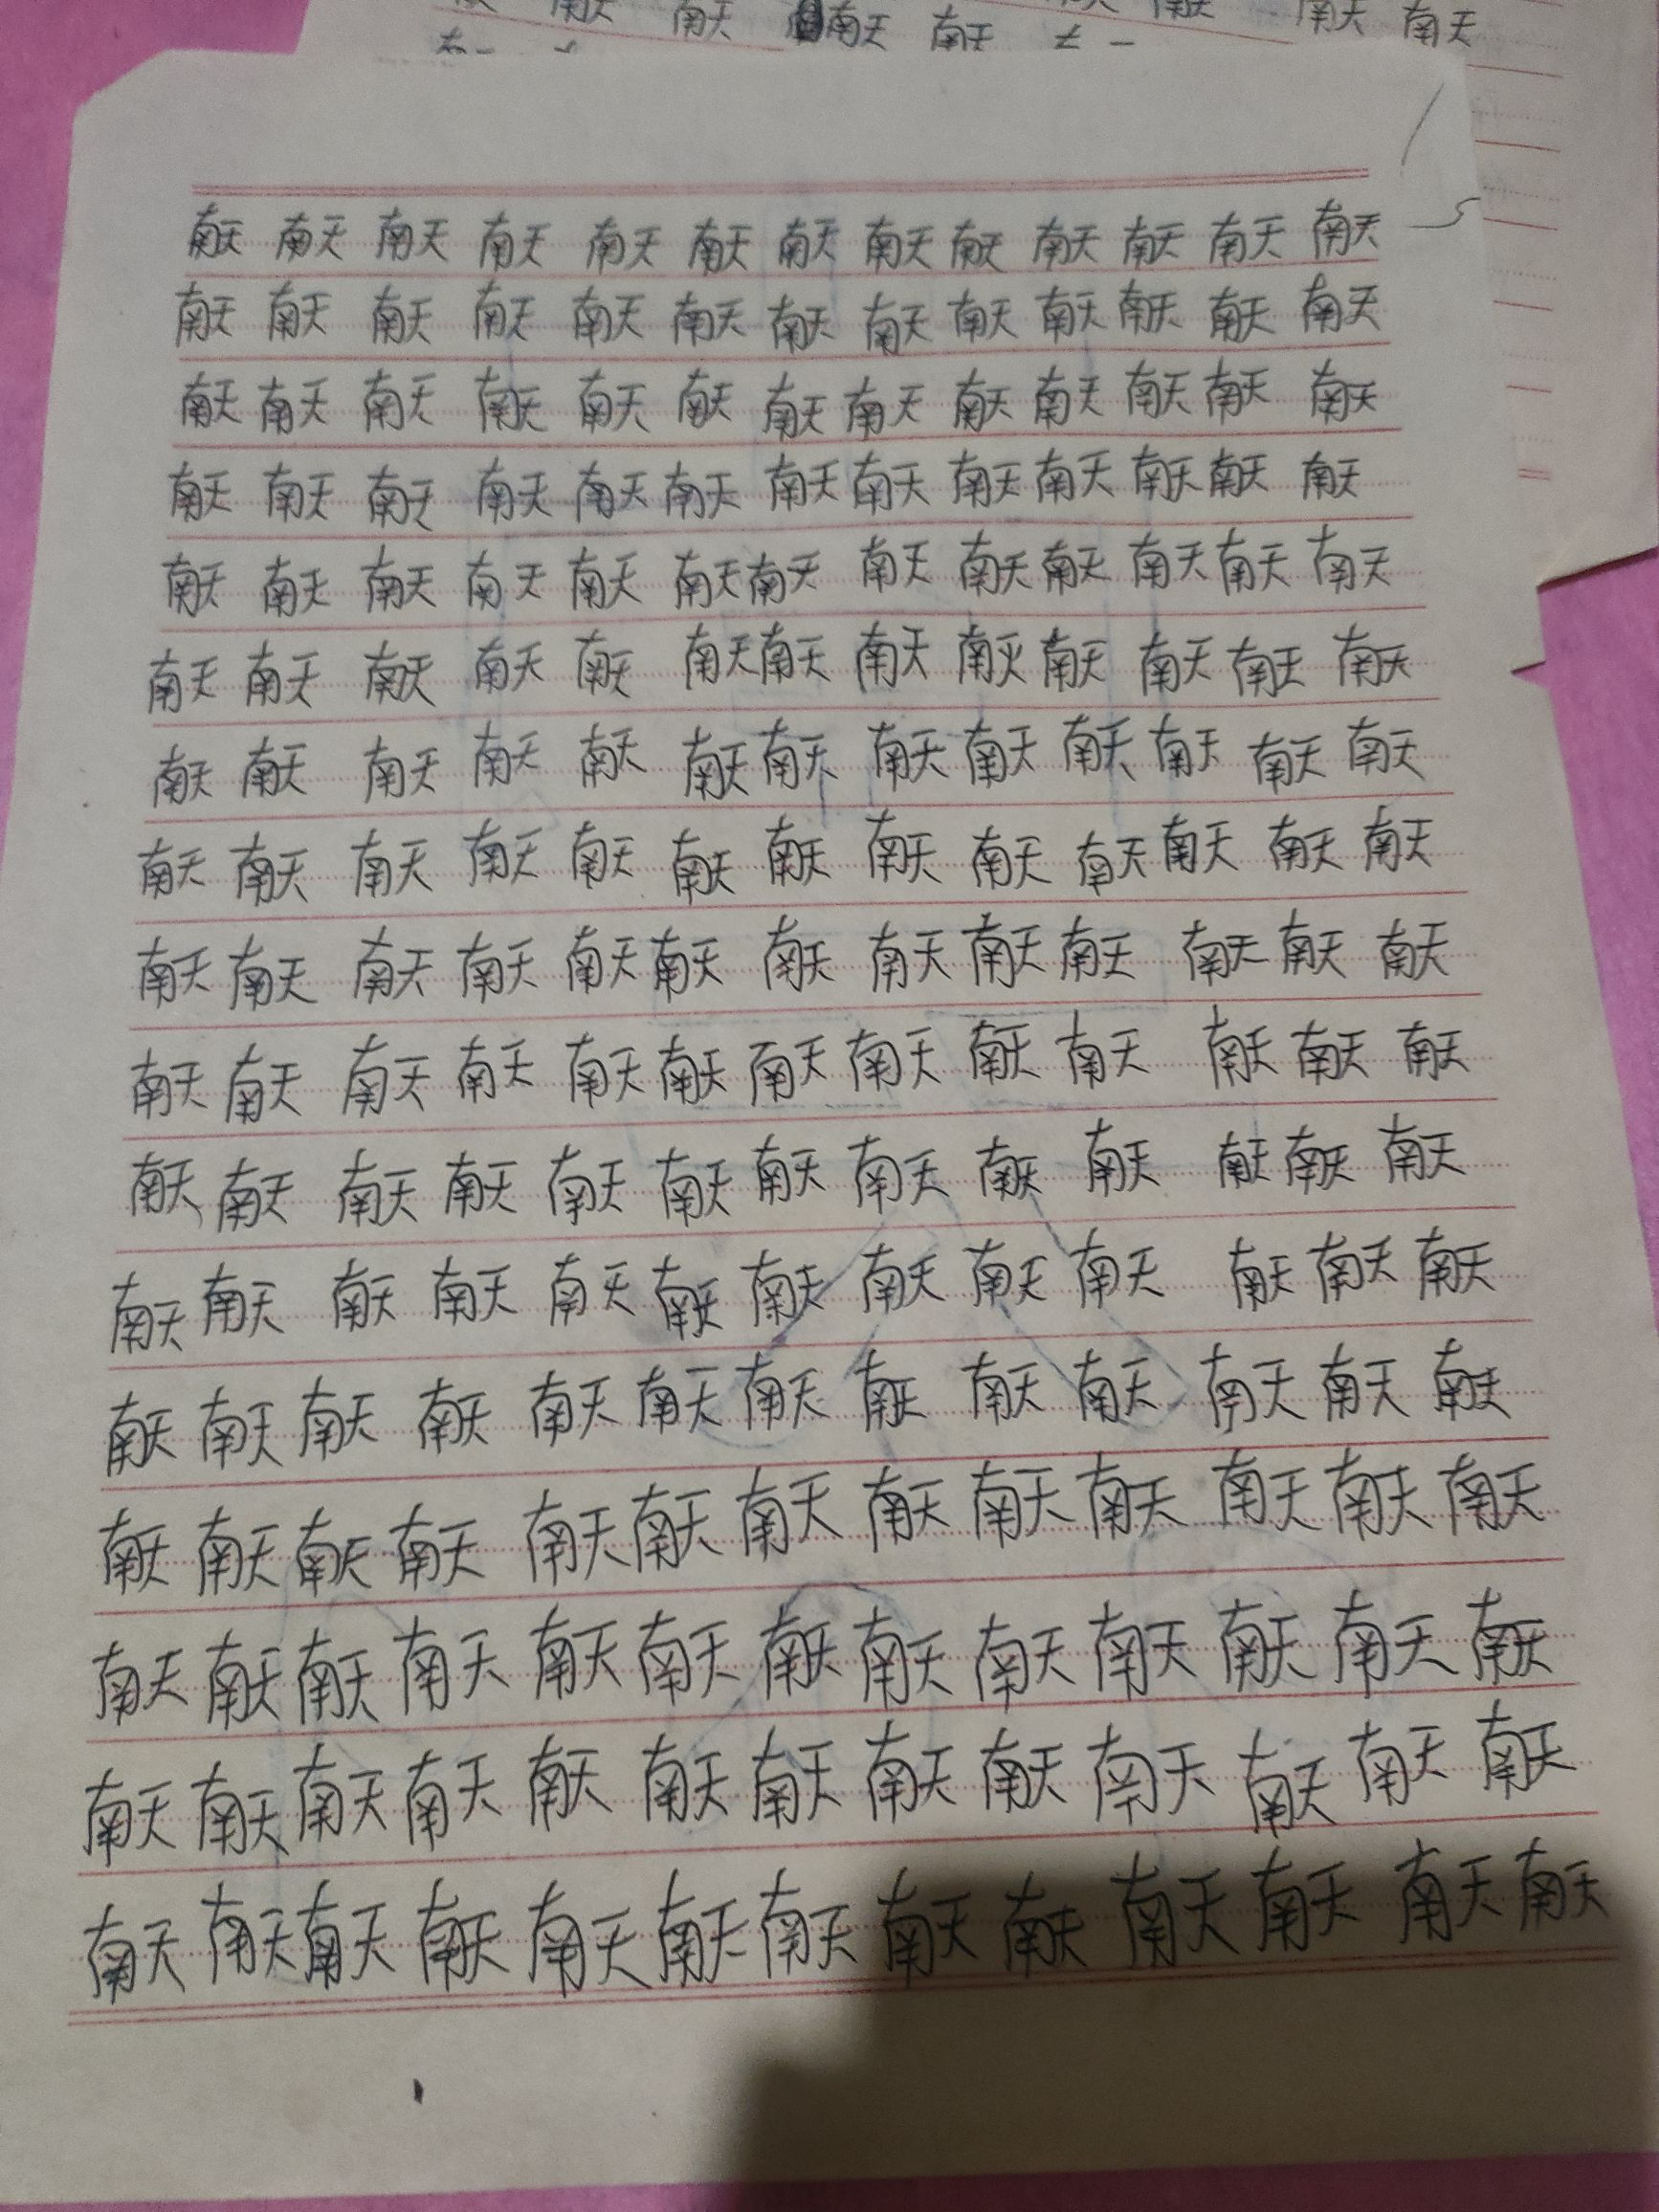 南天 南天 南天 南天 南天 南天 南天
南天 南天 南天 南天 南天 南天 南天 南天 南天 南天 南天 南天 南天
南天 南天 南天 南天 南天 南天 南天 南天 南天 南天 南天 南天 南天
南天 南天 南天 南天 南天 南天 南天 南天 南天 南天 南天 南天 南天
南天 南天 南天 南天 南天 南天 南天 南天 南天 南天 南天 南天 南天
南天 南天 南天 南天 南天 南天 南天 南天 南天 南天 南天 南天 南天
南天 南天 南天 南天 南天 南天 南天 南天 南天 南天 南天 南天 南天
南天 南天 南天 南天 南天 南天 南天 南天 南天 南天 南天 南天 南天
南天 南天 南天 南天 南天 南天 南天 南天 南天 南天 南天 南天 南天
南天 南天 南天 南天 南天 南天 南天 南天 南天 南天 南天 南天 南天
南天 南天 南天 南天 南天 南天 南天 南天 南天 南天 南天 南天 南天
南天 南天 南天 南天 南天 南天 南天 南天 南天 南天 南天 南天 南天
南天 南天 南天 南天 南天 南天 南天 南天 南天 南天 南天 南天 南天
南天 南天 南天 南天 南天 南天 南天 南天 南天 南天 南天 南天 南天
南天 南天 南天 南天 南天 南天 南天 南天 南天 南天 南天 南天 南天
南天 南天 南天 南天 南天 南天 南天 南天 南天 南天 南天 南天 南天
南天 南天 南天 南天 南天 南天 南天 南天 南天 南天 南天 南天 南天
南天 南天 南天 南天 南天 南天 南天 南天 南天 南天 南天 南天 南天